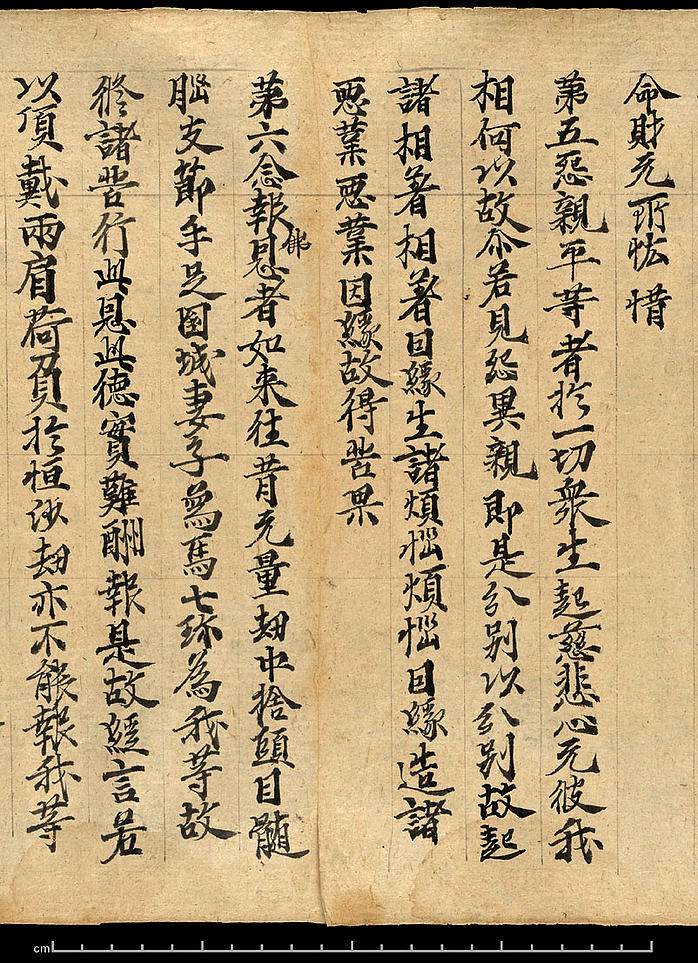 命財无所恡惜
第五怨親平等者於一切衆生起慈悲心无彼我
相何以故今若見怨異親即是分别以分别故起
諸相著相著因緣生諸煩惱煩惱因緣造諸
惡業惡業因緣故得苦果
第六念報佛恩者如来往昔无量劫中捨頭目髓
腦支節手足国城妻子象馬七珎為我等故
修諸苦行此恩此徳實難酬報是故經言若
以頂戴兩肩荷負於恒沙劫亦不能報我等